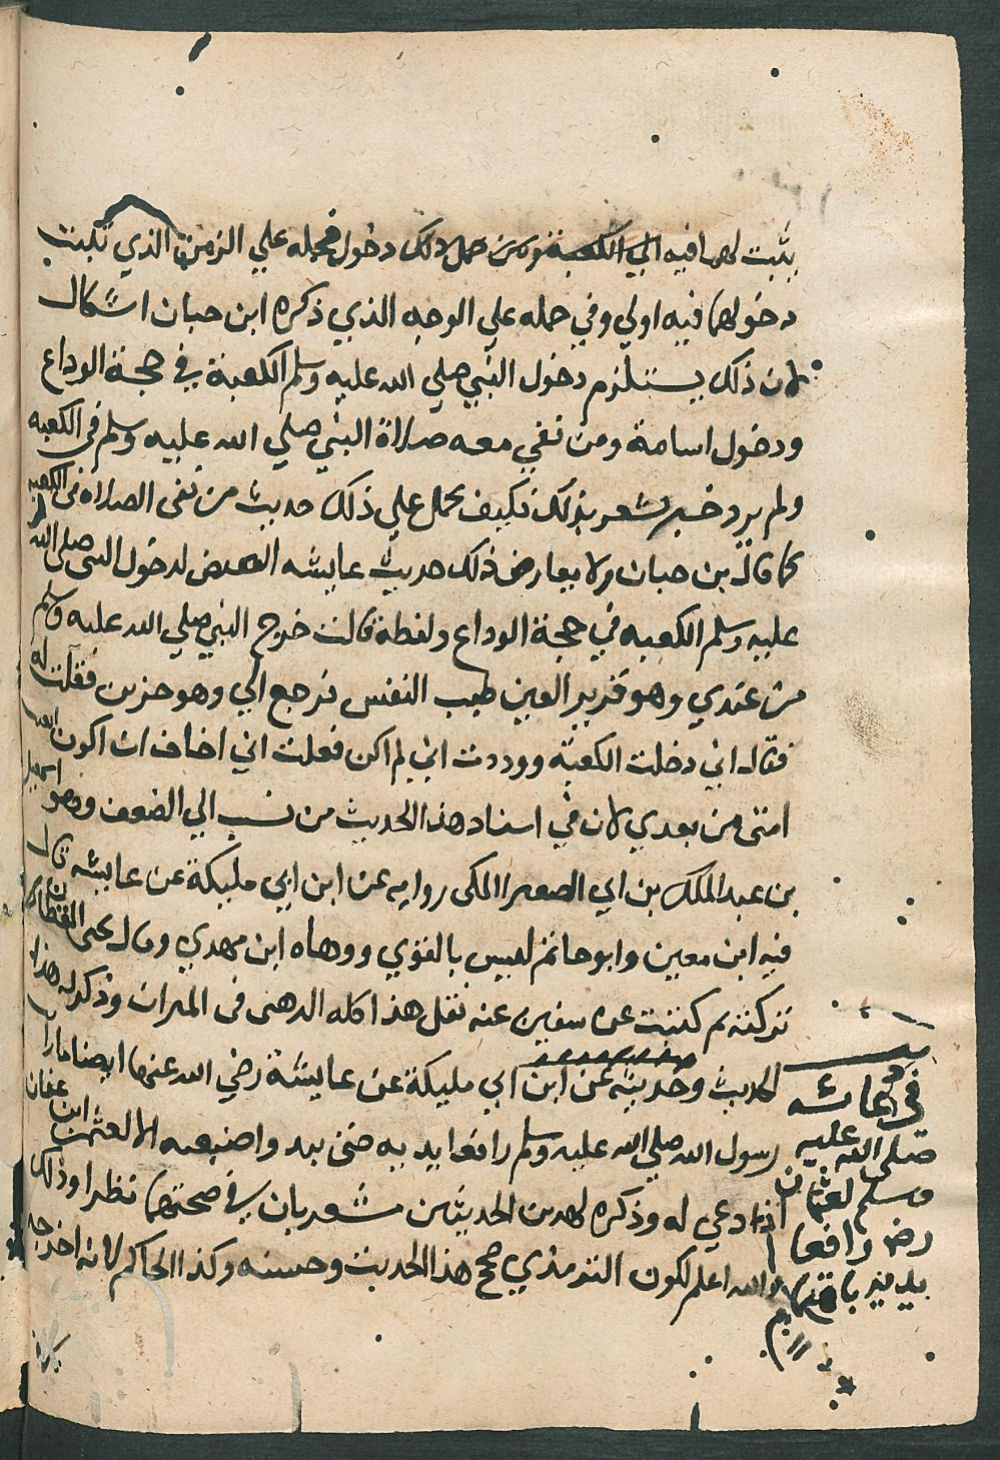 يثبت لهما فيه الي الكعبة ومن حمل ذلك دخول فحمله علي الزمن الذي تثبت
دخولهما فيه اولي وفي حمله علي الوجه الذي ذكره ابن حبان اشكال
لان ذلك يستلزم دخول النبي صلي الله عليه وسلم الكعبة في حجة الوداع
ودخول اسامة ومن نفي معه صلاة النبي صلي الله عليه وسلم في الكعبه
ولم يرد خبر يشعر بذلك فكيف يحمل علي ذلك حديث من نفي الصلاة في الكعبه
كما قال بن حبان ولا يعارض ذلك حديث عايشه المتضمن لدخول النبي صلي الله
عليه وسلم الكعبه في حجة الوداع ولفظه قالت خرج النبي صلي الله عليه وسلم
من عندي وهو قرير العين طيب النفس فرجع الي وهو حزين فقلت له
فقال اني دخلت الكعبة ووددت اني لم اكن فعلت اني اخاف ان اكون اتعبت
امتي من بعدي لان في اسناد هذا الحديث من نسب الي الضعف وهو اسمعيل
بن عبد الملك بن ابي الصعيرا المكي روايه عن ابن ابي مليكة عن عايشه قال
فيه ابن معين وابو حاتم ليس بالقوي ووهاه ابن مهدي وقال يحيى القطان
تركته ثم كتبت عن سفين عنه نقل هذا كله الذهبي في الميزان وذكر له هذا
الحديث وحديثه عن ابن ابي مليكة عن عايشة رضي الله عنها ايضا ما رايت
رسول الله صلي الله عليه وسلم رافعا يديه حتي يبد واضبعيه الا لعثمن ابن عفان
اذا دعي له وذكره لهدين الحديثين مشعر بان في صحتهما نظرا وذلك
والله اعلم لكون الترمذي صحح هذا الحديث وحسنه وكذا الحاكم لانه اخرجه
في دعائه
صلي الله عليه
وسلم لعثمان
رضي رافعا